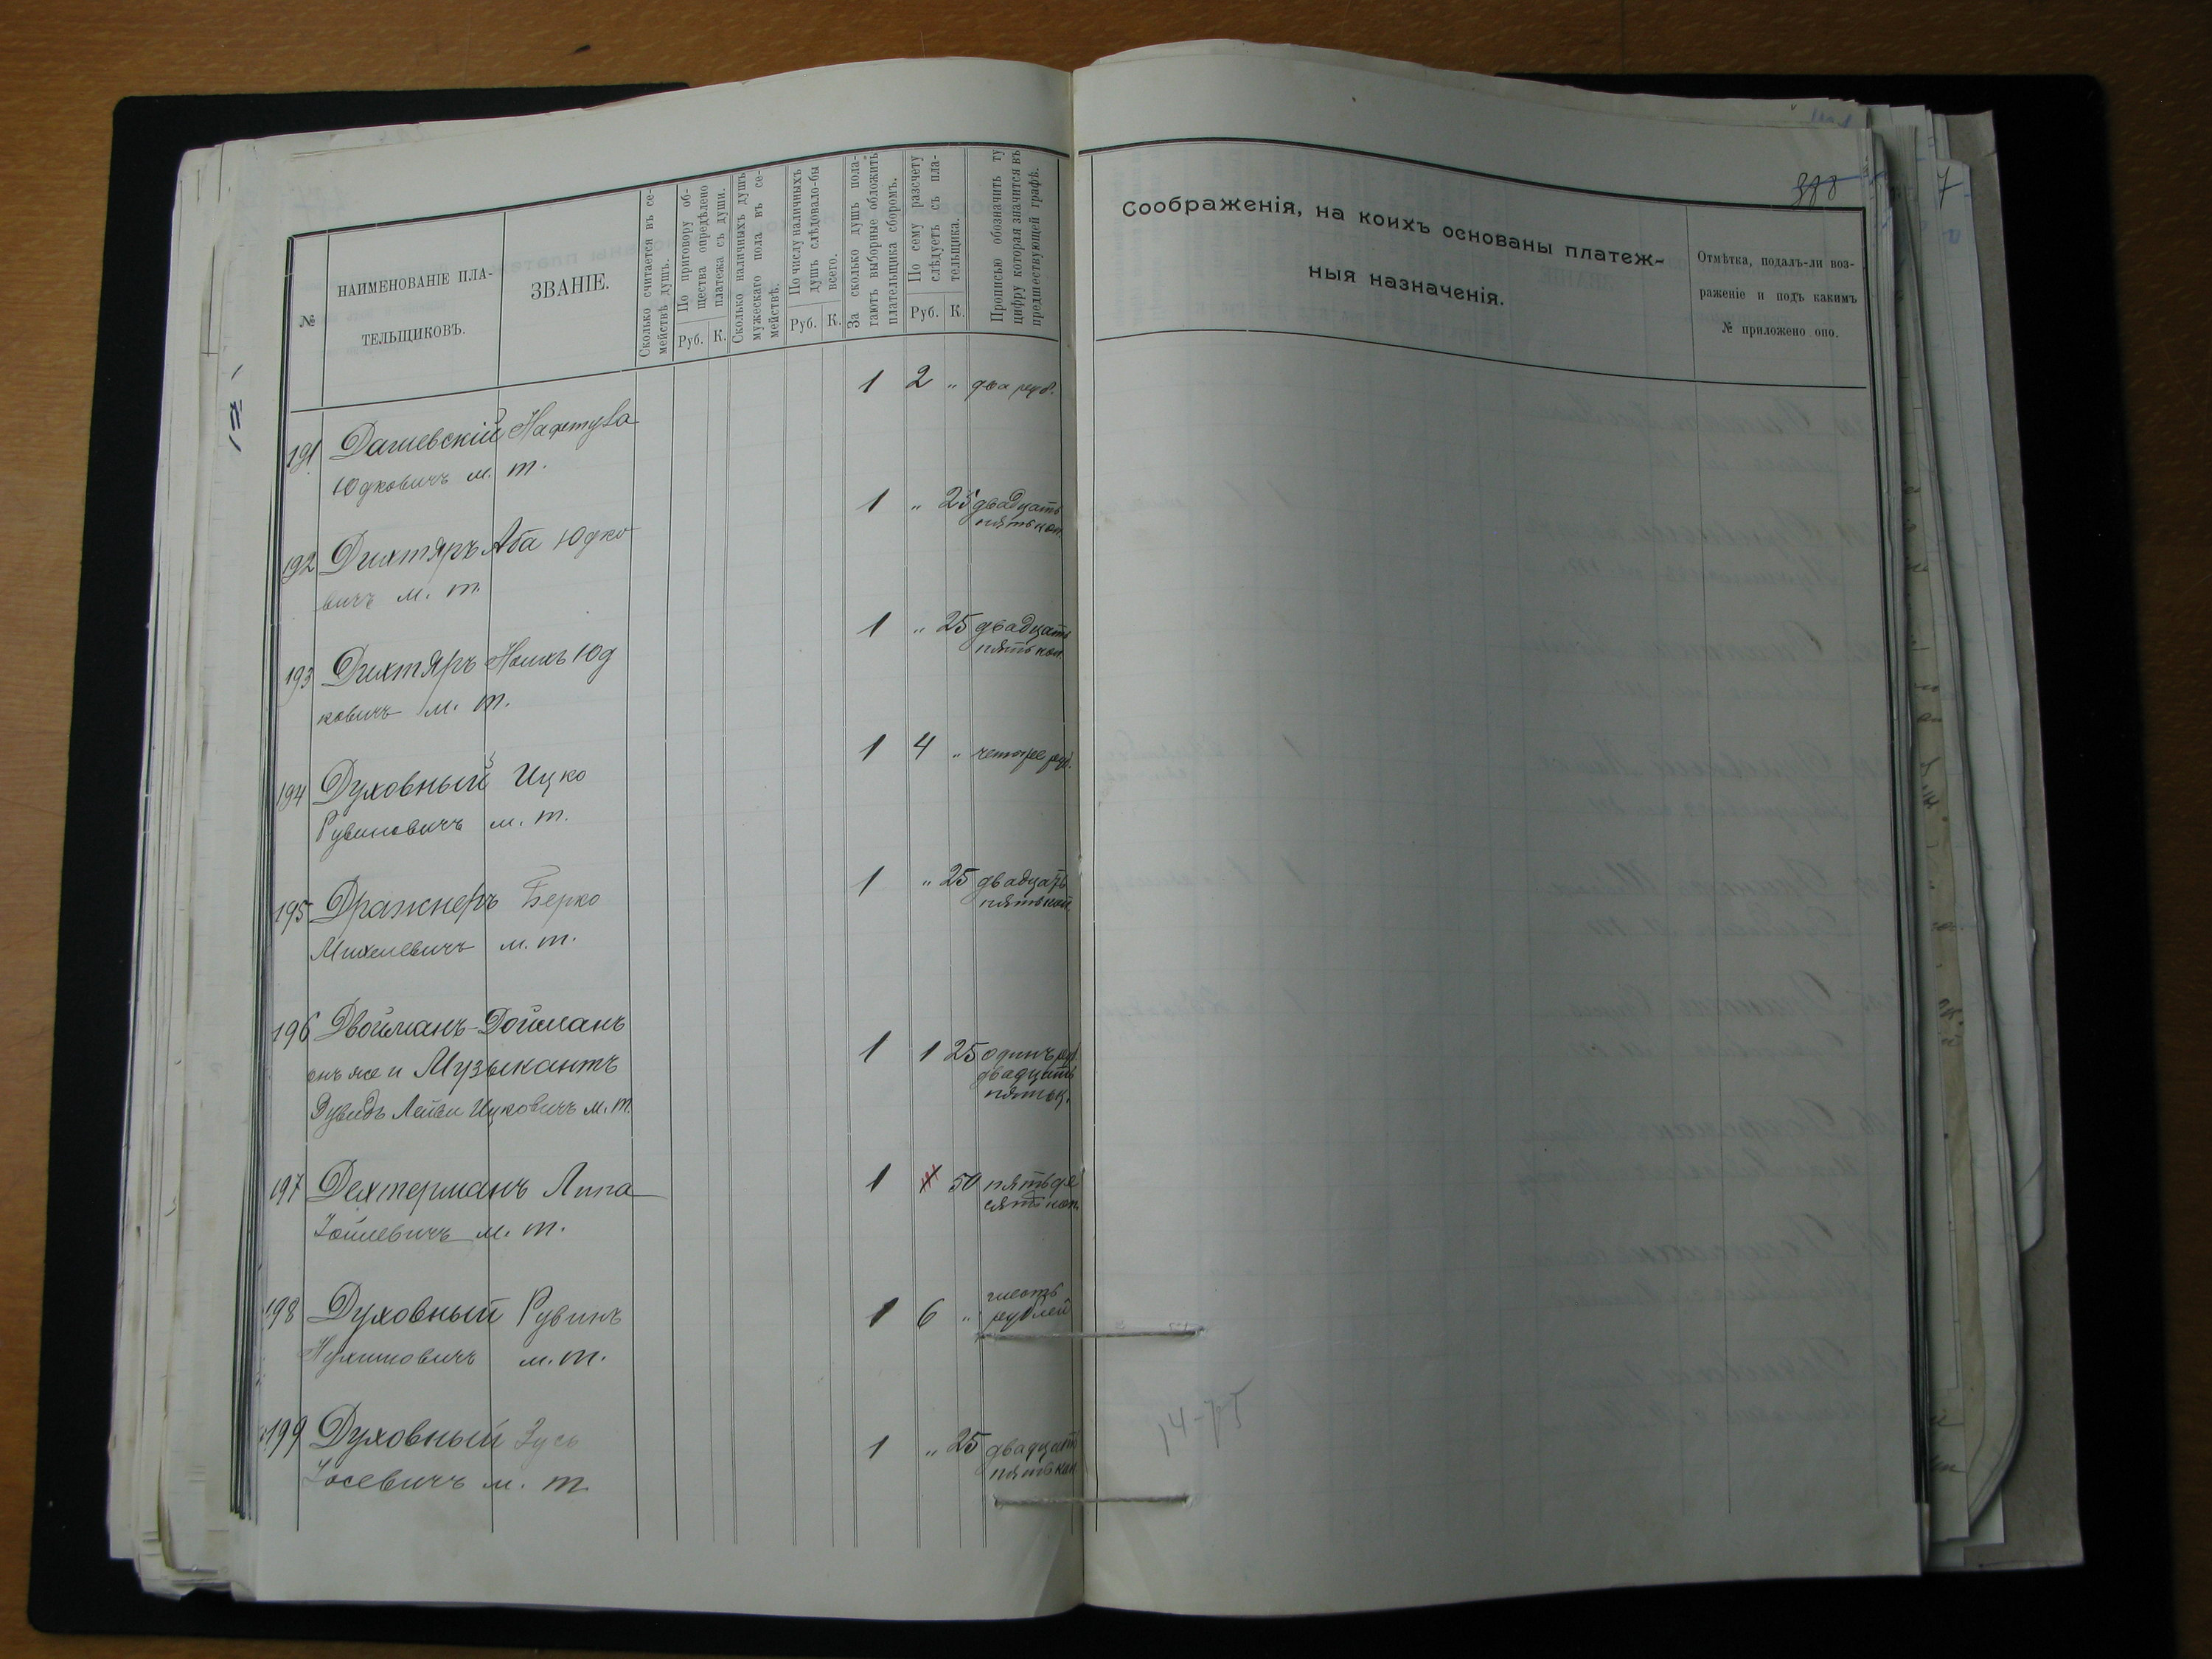 №
НАИМЕНОВАНІЕ ПЛА-
ТЕЛЬЩИКОВЪ.
ЗВАНІЕ.
Сколько считается въ се-
мействѣ душъ.
По приговору об-
щества опредѣлено
платежа съ души.
Руб. К.
Сколько наличныхъ душъ
мужескаго пола въ се-
мействѣ.
По числу наличныхъ
душъ слѣдовало-бы
всего.
Руб. К.
За сколько душъ пола-
гаютъ выборные обложить
плательщика сборомъ.
По сему разсчету
слѣдуетъ съ пла-
тельщика.
Руб. К.
Прописью обозначить ту
цифру которая значится въ
предшествующей графѣ.
191 Дашевскій Нафтула 1 2 " два руб.
Юдковичъ м. т.
192 Дихтяръ Аба Юдко 1 " 25 двадцать
вичъ м. т. пять коп.
193 Дихтяръ Юд 1 " 25 двадцать
ковичъ м. т. пять коп.
194 Духовный Ицко 1 4 " четыре руб.
Рувиновичъ м. т.
195 Дражнеръ Берко 1 " 25 двадцать
Михелевичъ м. т. пять коп.
196 Двойманъ-Дойманъ 1 1 25 одинъ руб.
онъ же и Музыкантъ двадцать
Лейви Ицковичъ м. т. пять к.
197 Дехтерманъ Липа 1 50 пятьде
Зойлевичъ м. т. сятъ коп.
198 Духовный Рувинъ 1 6 " шесть
Нухимовичъ м. т. рублей
199 Духовный Зусь 1 " 25 двадцать
Іосевичъ м. т. пять коп
Соображенія, на коихъ основаны платеж-
ныя назначенія.
Отмѣтка, подалъ-ли воз-
раженіе и подъ какимъ
№ приложено оно.
14-75
7